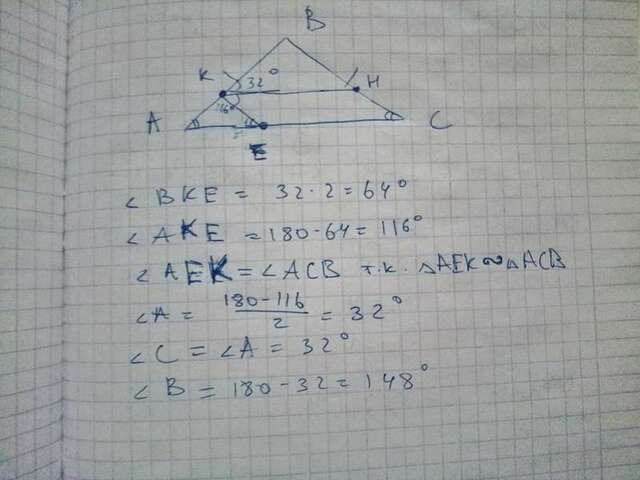 B
K 32° H
116°
A C
E
∠BKE = 32·2 = 64°
∠AKE = 180-64 = 116°
∠AEK = ∠ACB т.к. △AEK∾△ACB
∠A = \frac{180-116}{2} = 32°
∠C = ∠A = 32°
∠B = 180-32 = 148°